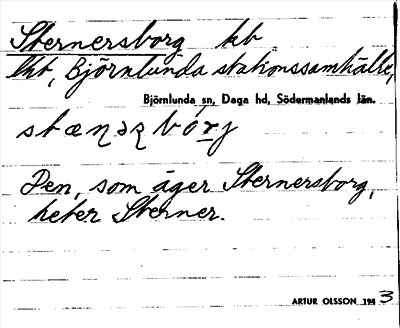 Sternersborg kb
lht, Björnlunda stationssamhälle,
Björnlunda sn, Daga hd, Södermanlands län.
Den, som äger Sternersborg,
heter Sterner.
ARTUR OLSSON 1943